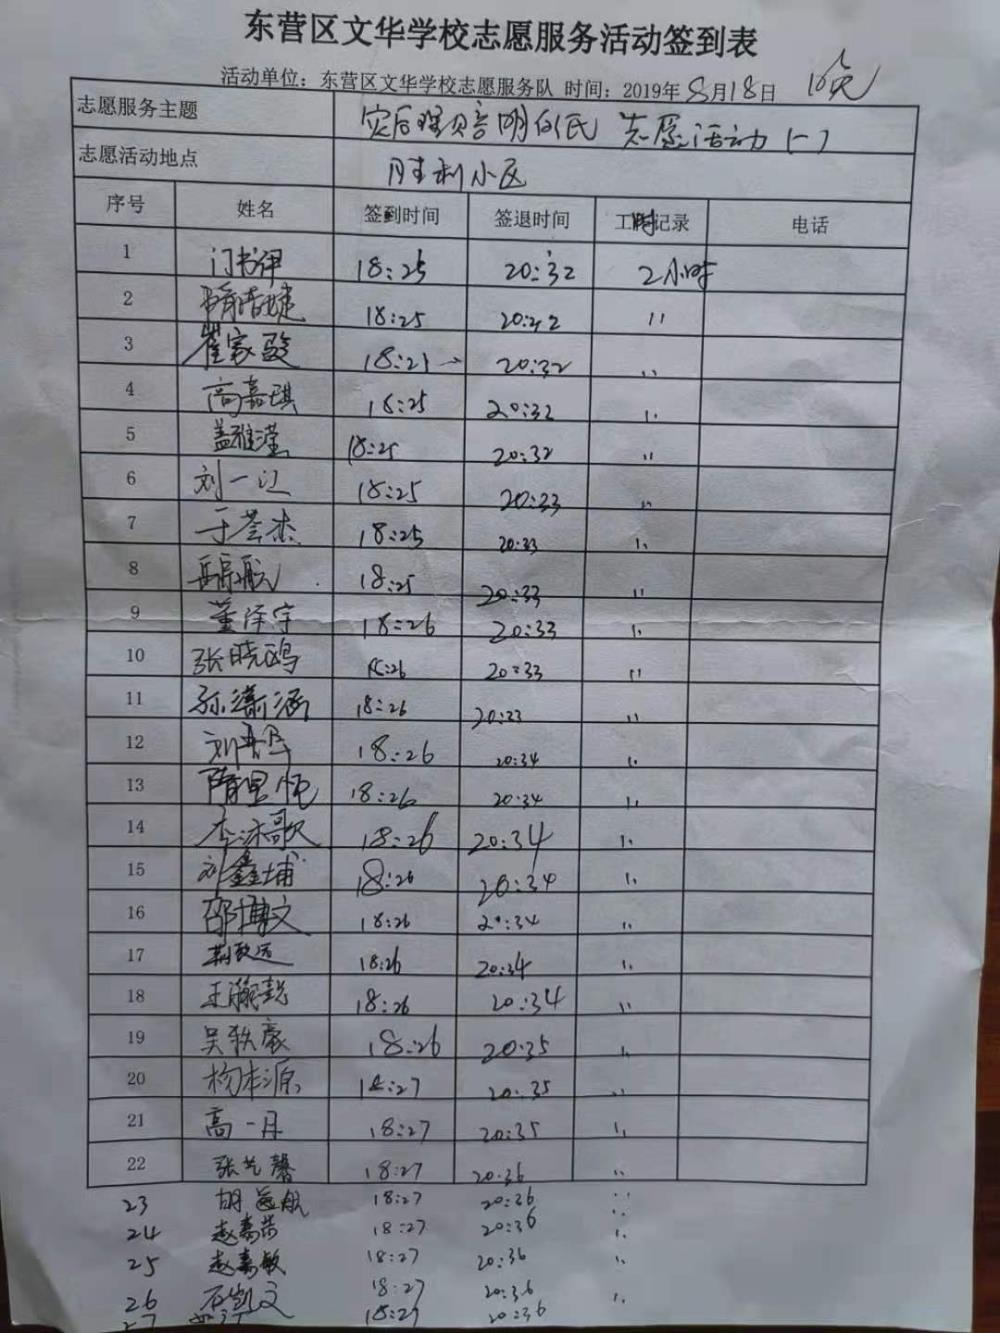 东营区文华学校志愿服务活动签到表
活动单位：东营区文华学校志愿服务队 时间：2019年8月18日
志愿服务主题 志愿活动(一)
志愿活动地点 胜利小区
序号 姓名 签到时间 签退时间 工时记录 电话
1 门书伊 18:25 20:32 2小时
2 18:25 20:42 11
3 崔家骏 18:21 20:32 ,,
4 高嘉琪 18:25 20:32 ,,
5 盖雅滢 18:25 20:32 ,,
6 刘一江 18:25 20:33 ,,
7 于荟杰 18:25 20:33 ,,
8 18:25 20:33 ,,
9 董泽宇 18:26 20:33 ,,
10 张晓鸥 18:26 20:33 ,,
11 孙潇涵 18:26 20:33 ,,
12 刘 18:26 20:34 ,,
13 隋 恒 18:26 20:34 ,,
14 李沐歌 18:26 20:34 ,,
15 刘鑫埔 18:26 20:34 ,,
16 邵博文 18:26 20:34 ,,
17 18:26 20:34 ,,
18 王瀚懿 18:26 20:34 ,,
19 吴轶豪 18:26 20:35 ,,
20 杨本源 18:27 20:35 ,,
21 高一月 18:27 20:35 ,,
22 张艺馨 18:27 20:36 ,,
23 胡远航 18:27 20:36 ,,
24 赵嘉荣 18:27 20:36 ,,
25 赵嘉敏 18:27 20:36 ,,
26 石凯文 18:27 20:36 ,,
27 18:27 20:36